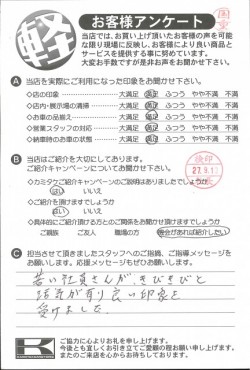 軽
お客様アンケート
当店では、お買い上げ頂いたお客様の声を可能
な限り現場に反映し、お客様により良い商品と
サービスを提供する事に努めています。
大変お手数ですが是非お声をお聞かせ下さい。
A 当店を実際にご利用になった印象をお聞かせ下さい。
◇店の印象 大満足 満足 ふつう やや不満 不満
◇店内・展示場の清掃 大満足 満足 ふつう やや不満 不満
◇お車の品揃え 大満足 満足 ふつう やや不満 不満
◇営業スタッフの対応 大満足 満足 ふつう やや不満 不満
◇納車時のお車の状態 大満足 満足 ふつう やや不満 不満
B 当店はご紹介を大切にしてあります。
ご紹介キャンペーンについてお聞かせ下さい。
27.9.13
◇カミタケご紹介キャンペーンのご説明はありましたでしょうか
はい いいえ
◇ご紹介を頂けますでしょうか
はい いいえ
◇具体的にご紹介頂ける方とのご関係をお聞かせ頂けますでしょうか
ご親族 ご友人 職場の方 機会があれば紹介したい
C 担当させて頂きましたスタッフへのご指摘、ご指導メッセージを
お願いします。応援メッセージもぜひお願いします。
若い社員さんが、きびきびと
活気が有り良い印象を
受けました
K
ご協力に心よりお礼を申し上げます。
今後とも宜しくお引き立てご愛顧の程お願い申し上げます。
またのご来店を心からお待ちしております。